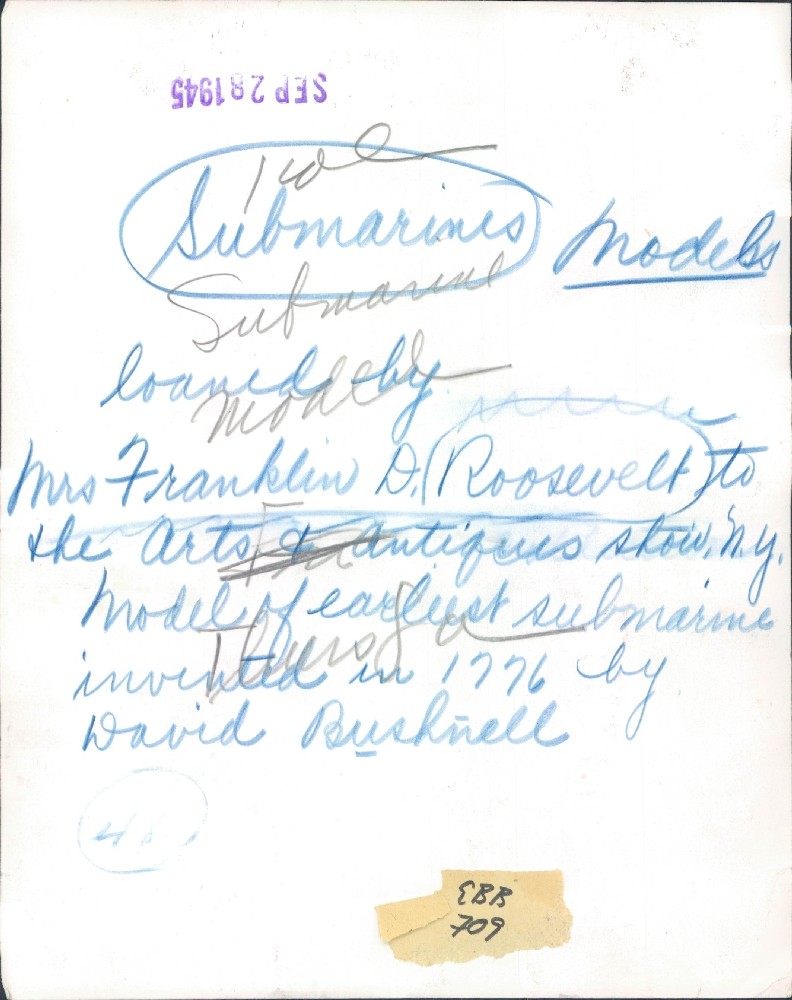 SEP 28 1945
1 col
Submarines Models
Submarine
loaned by
Model
Mrs Franklin D. Roosevelt to
the Arts & Antiques show, N.Y.
Model of earliest submarine
Thurs
invented in 1776 by
David Bushnell
EBB
709